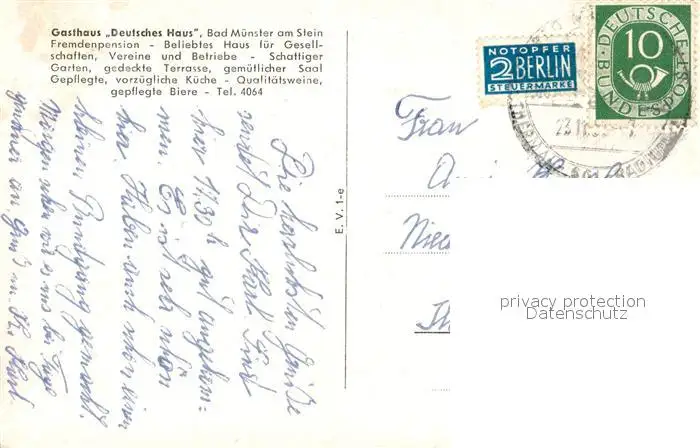 Gasthaus „Deutsches Haus", Bad Münster am Stein
Fremdenpension - Beliebtes Haus für Gesell-
schaften, Vereine und Betriebe - Schattiger
Garten, gedeckte Terrasse, gemütlicher Saal
Gepflegte, vorzügliche Küche - Qualitätsweine,
gepflegte Biere - Tel. 4064
NOTOPFER
2 BERLIN
STEUERMARKE
DEUTSCHE BUNDESPOST
10
Die herzlichsten Grüße
sendet Dir Karl. Sind
hier 17.30 h gut angekom=
men. Es ist sehr schön
hier. Haben auch schon einen
kleinen Rundgang gemacht.
Morgen sehen wir es uns bei Tage
an. Gruß u. Kuß Karl
E. V. 1-e
Frau
Nie
privacy protection
Datenschutz